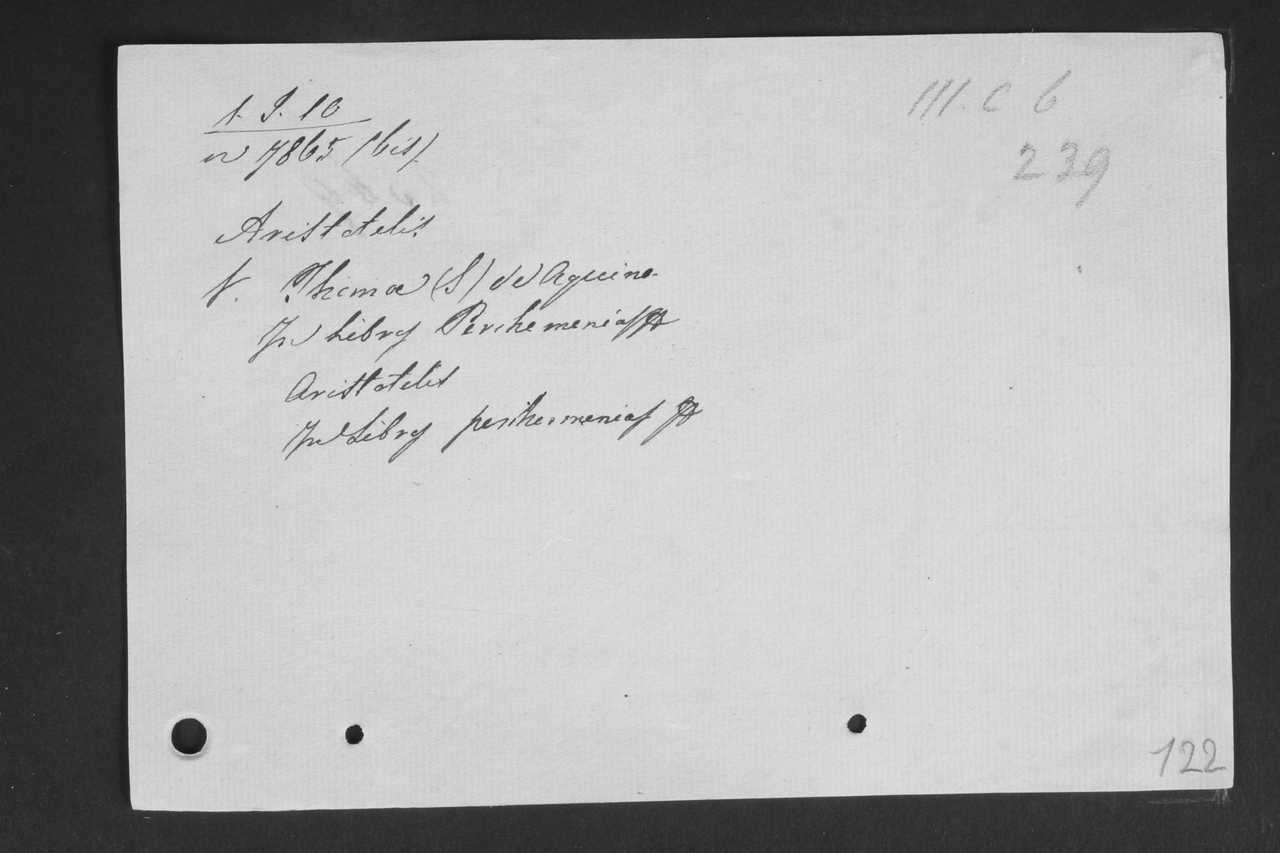 1. J. 10
III. C 6
n 7865 (bis)
239
Aristotelis
V. Thomae (S) de Aquino.
In Libros Perihermenias
Aristotelis
In Libros perihermenias
122